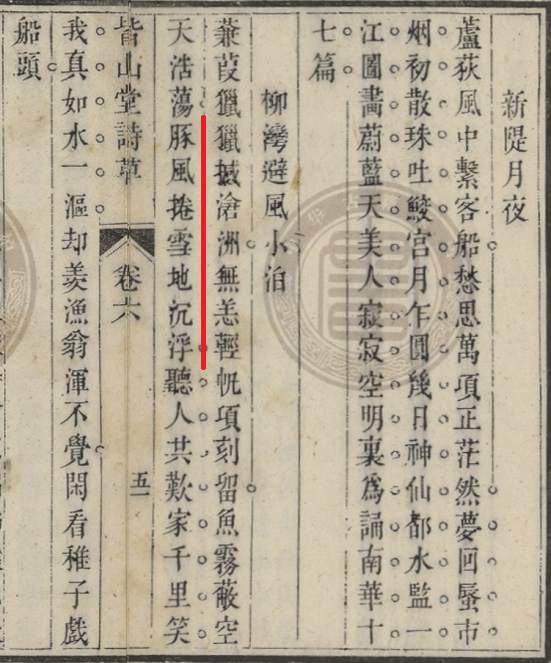 新隄月夜
蘆荻風中繫客船愁思萬頃正茫然夢回蜃市
烟初散珠吐鮫宮月乍圓幾日神仙都水監一
江圖畵蔚藍天美人寂寂空明裏爲誦南華十
七篇
柳灣避風小泊
蒹葭獵獵撼滄洲無恙輕帆頃刻留魚霧蔽空
天浩蕩豚風捲雪地沉浮聽人共歎家千里笑
皆山堂詩草 卷六 五一
我真如水一漚却羨漁翁渾不覺閑看稚子戲
船頭